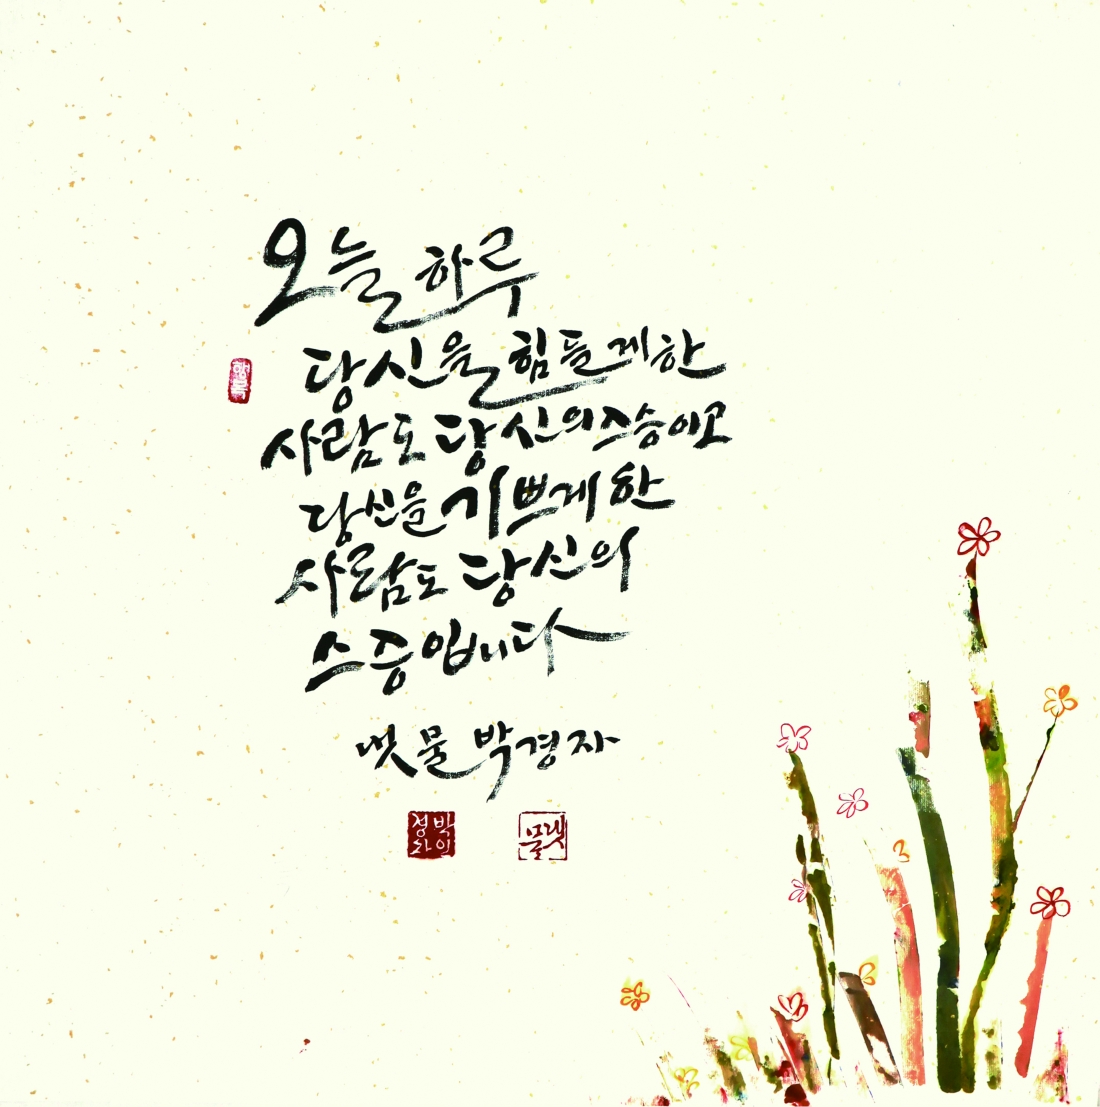 오늘 하루
당신을 힘들게 한
사람도 당신의 스승이고
당신을 기쁘게 한
사람도 당신의
스승입니다
냇물 박경자